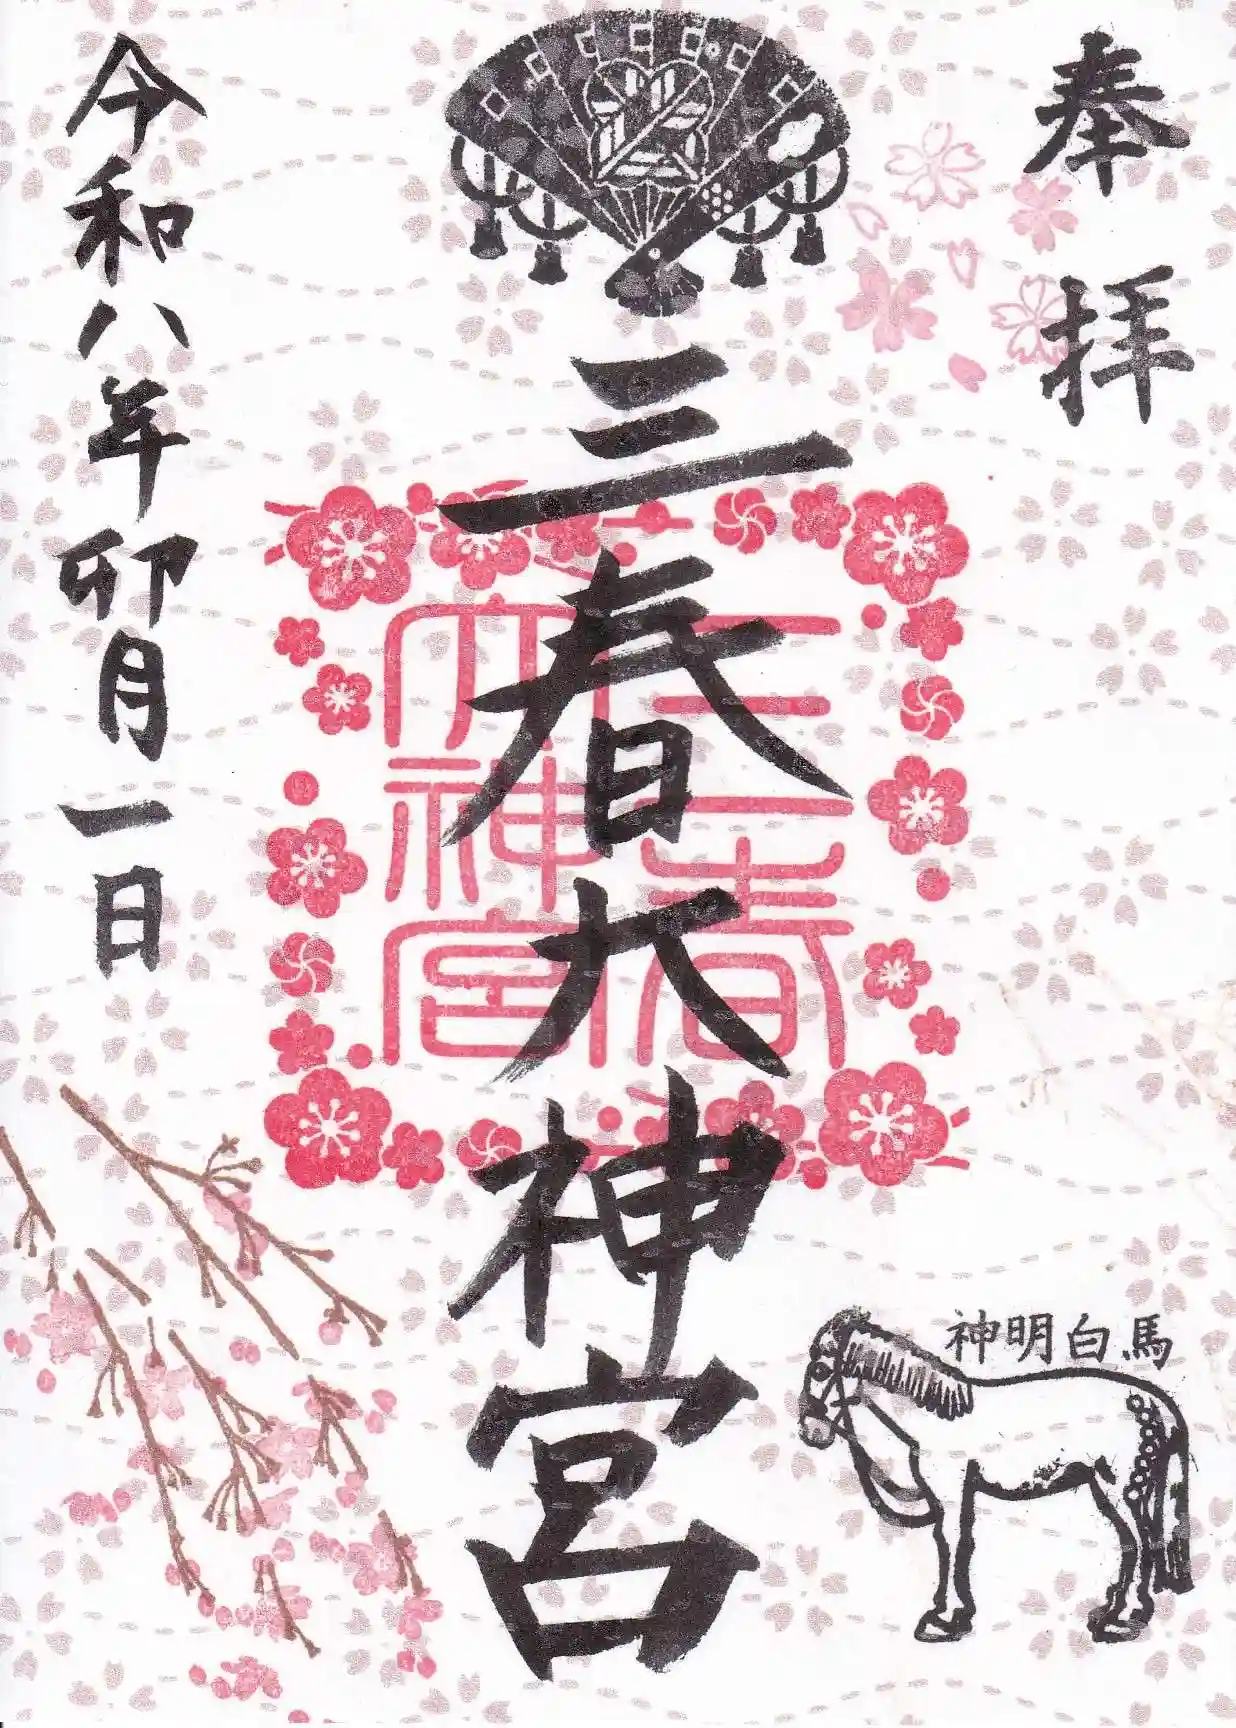 奉拝
三春大神宮
三春大神宮
令和八年卯月一日
神明白馬